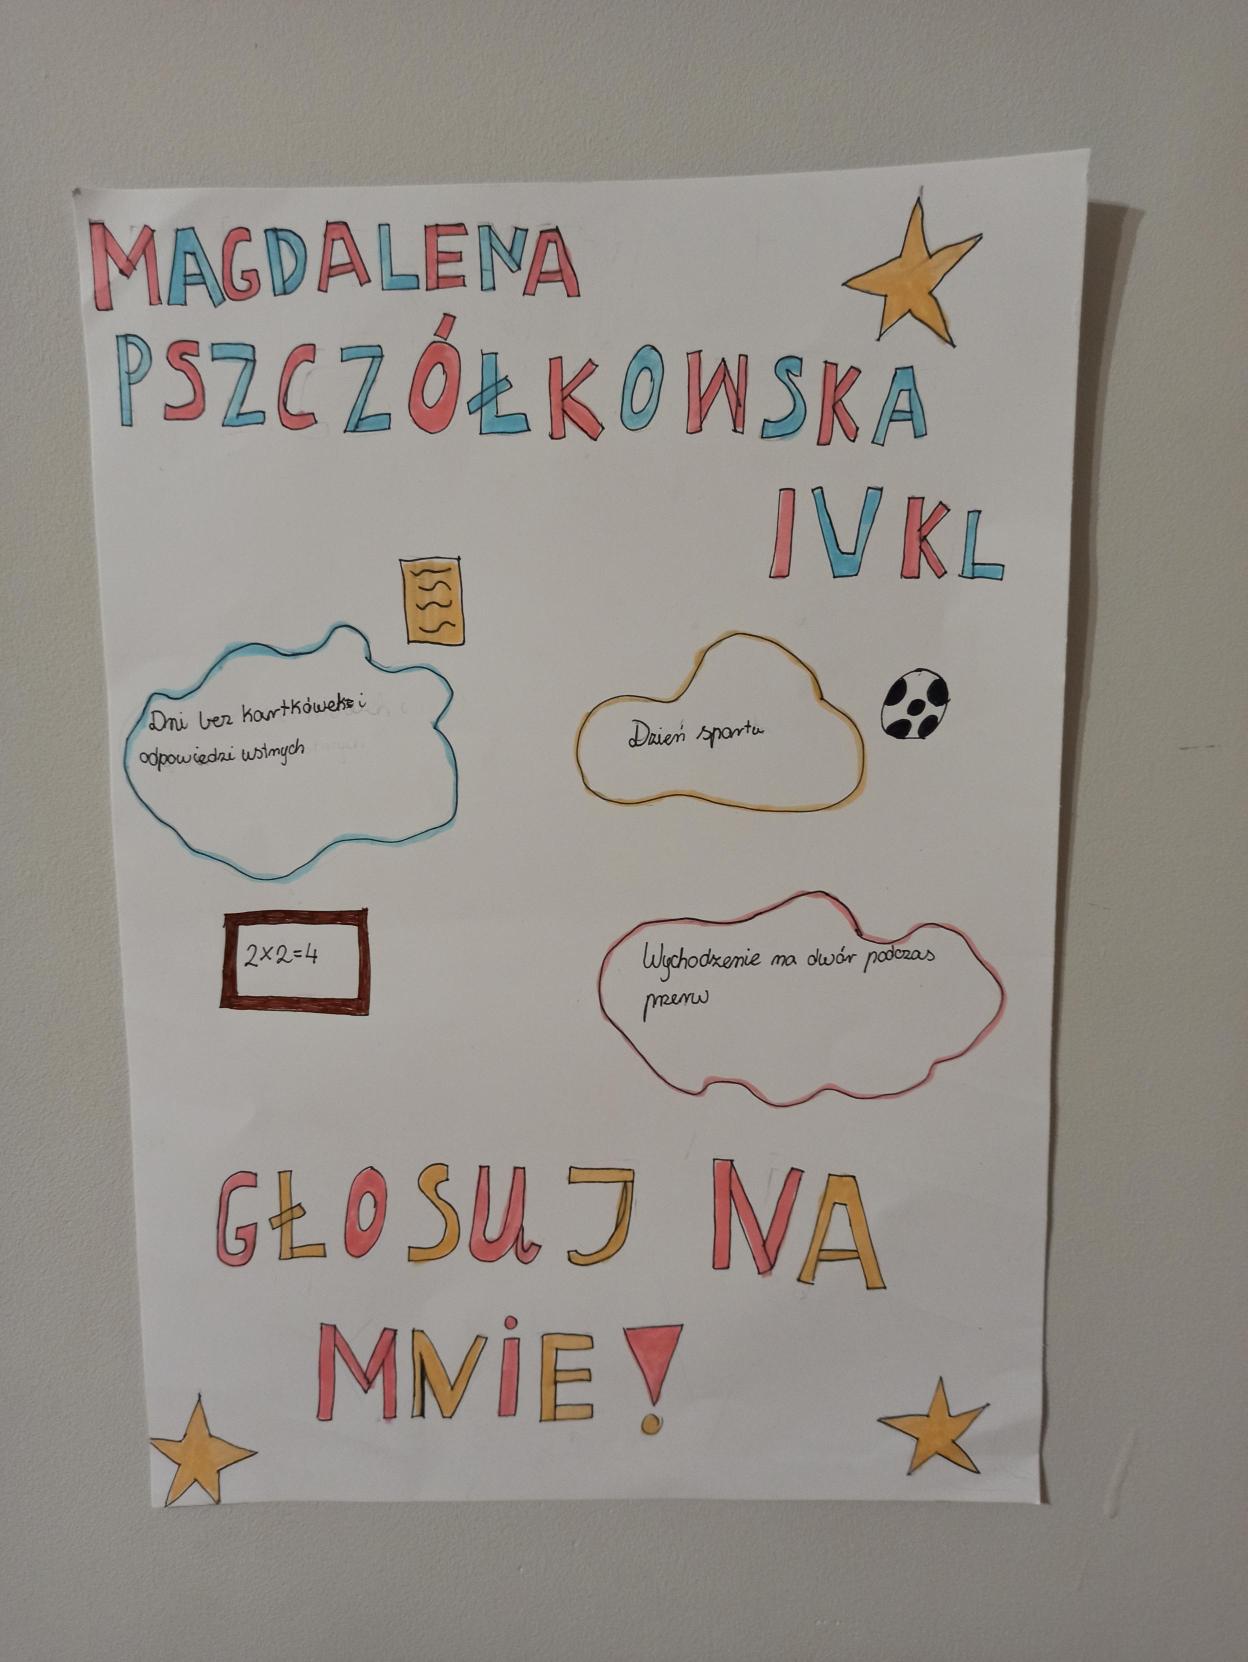 MAGDALENA
PSZCZÓŁKOWSKA
IV KL
Dni bez kartkówek i
odpowiedzi ustnych
Dzień sportu
2x2=4
Wychodzenie na dwór podczas
przerw
GŁOSUJ NA
MNiE!